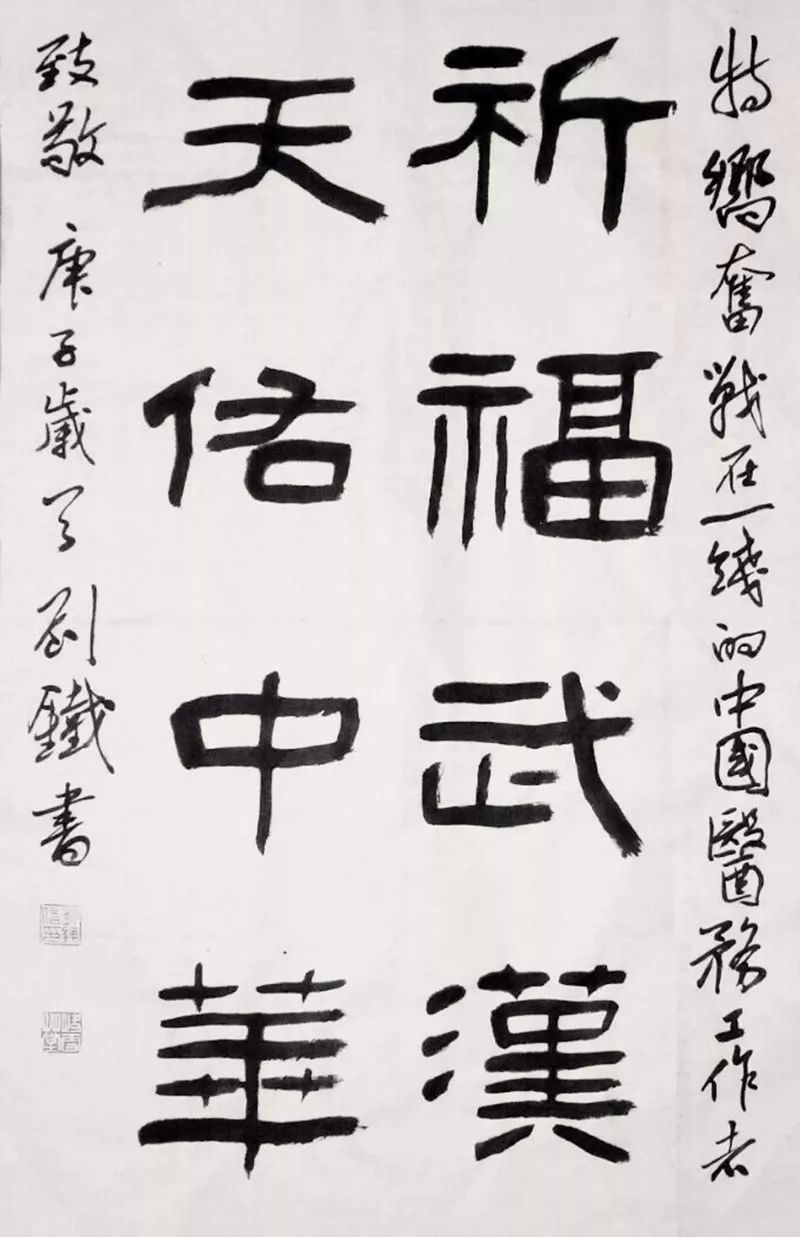 特嚮奮戰在一綫的中國醫務工作者
祈福武漢
天佑中華
致敬 庚子歲首 劉鐵書